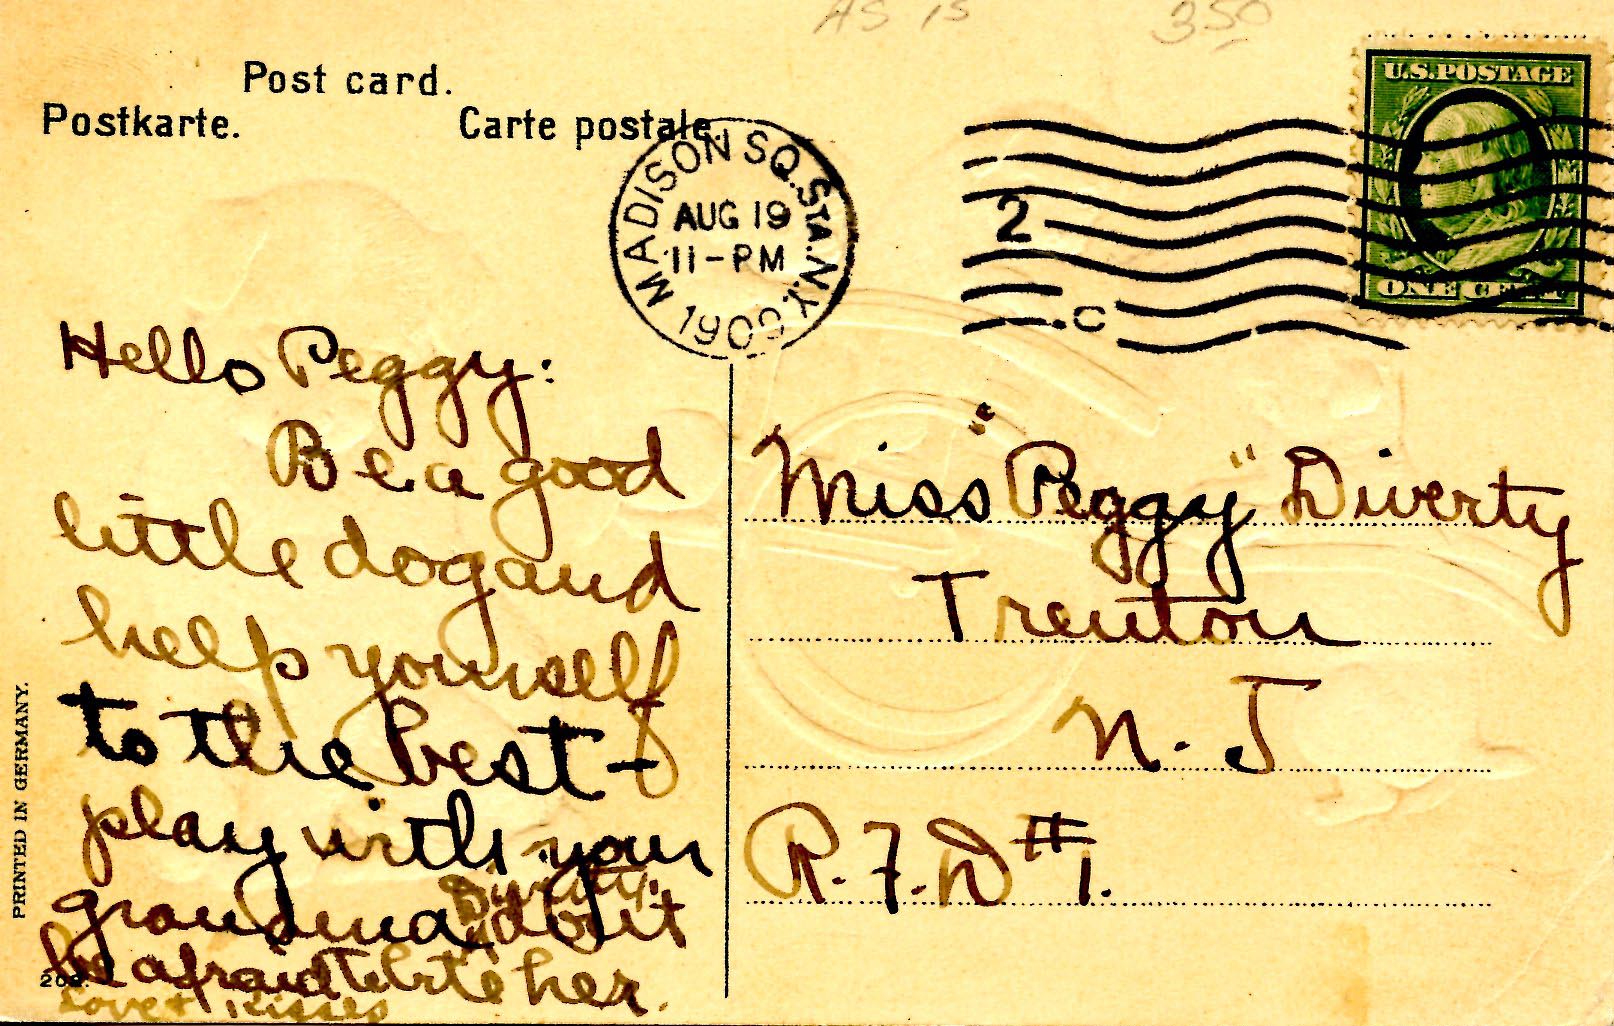 AS IS 350
Post card.
Postkarte. Carte postale.
MADISON SQ. STA. N.Y.
AUG 19
11-PM
1909
2
C
U.S. POSTAGE
ONE CENT
Hello Peggy:
Be a good
little dog and
help yourself
to the best - &
play with your
grandma Diverty. don't
be afraid to bite her.
Love & Kisses
Miss "Peggy" Diverty
Trenton
N. J
R. F. D #1.
PRINTED IN GERMANY.